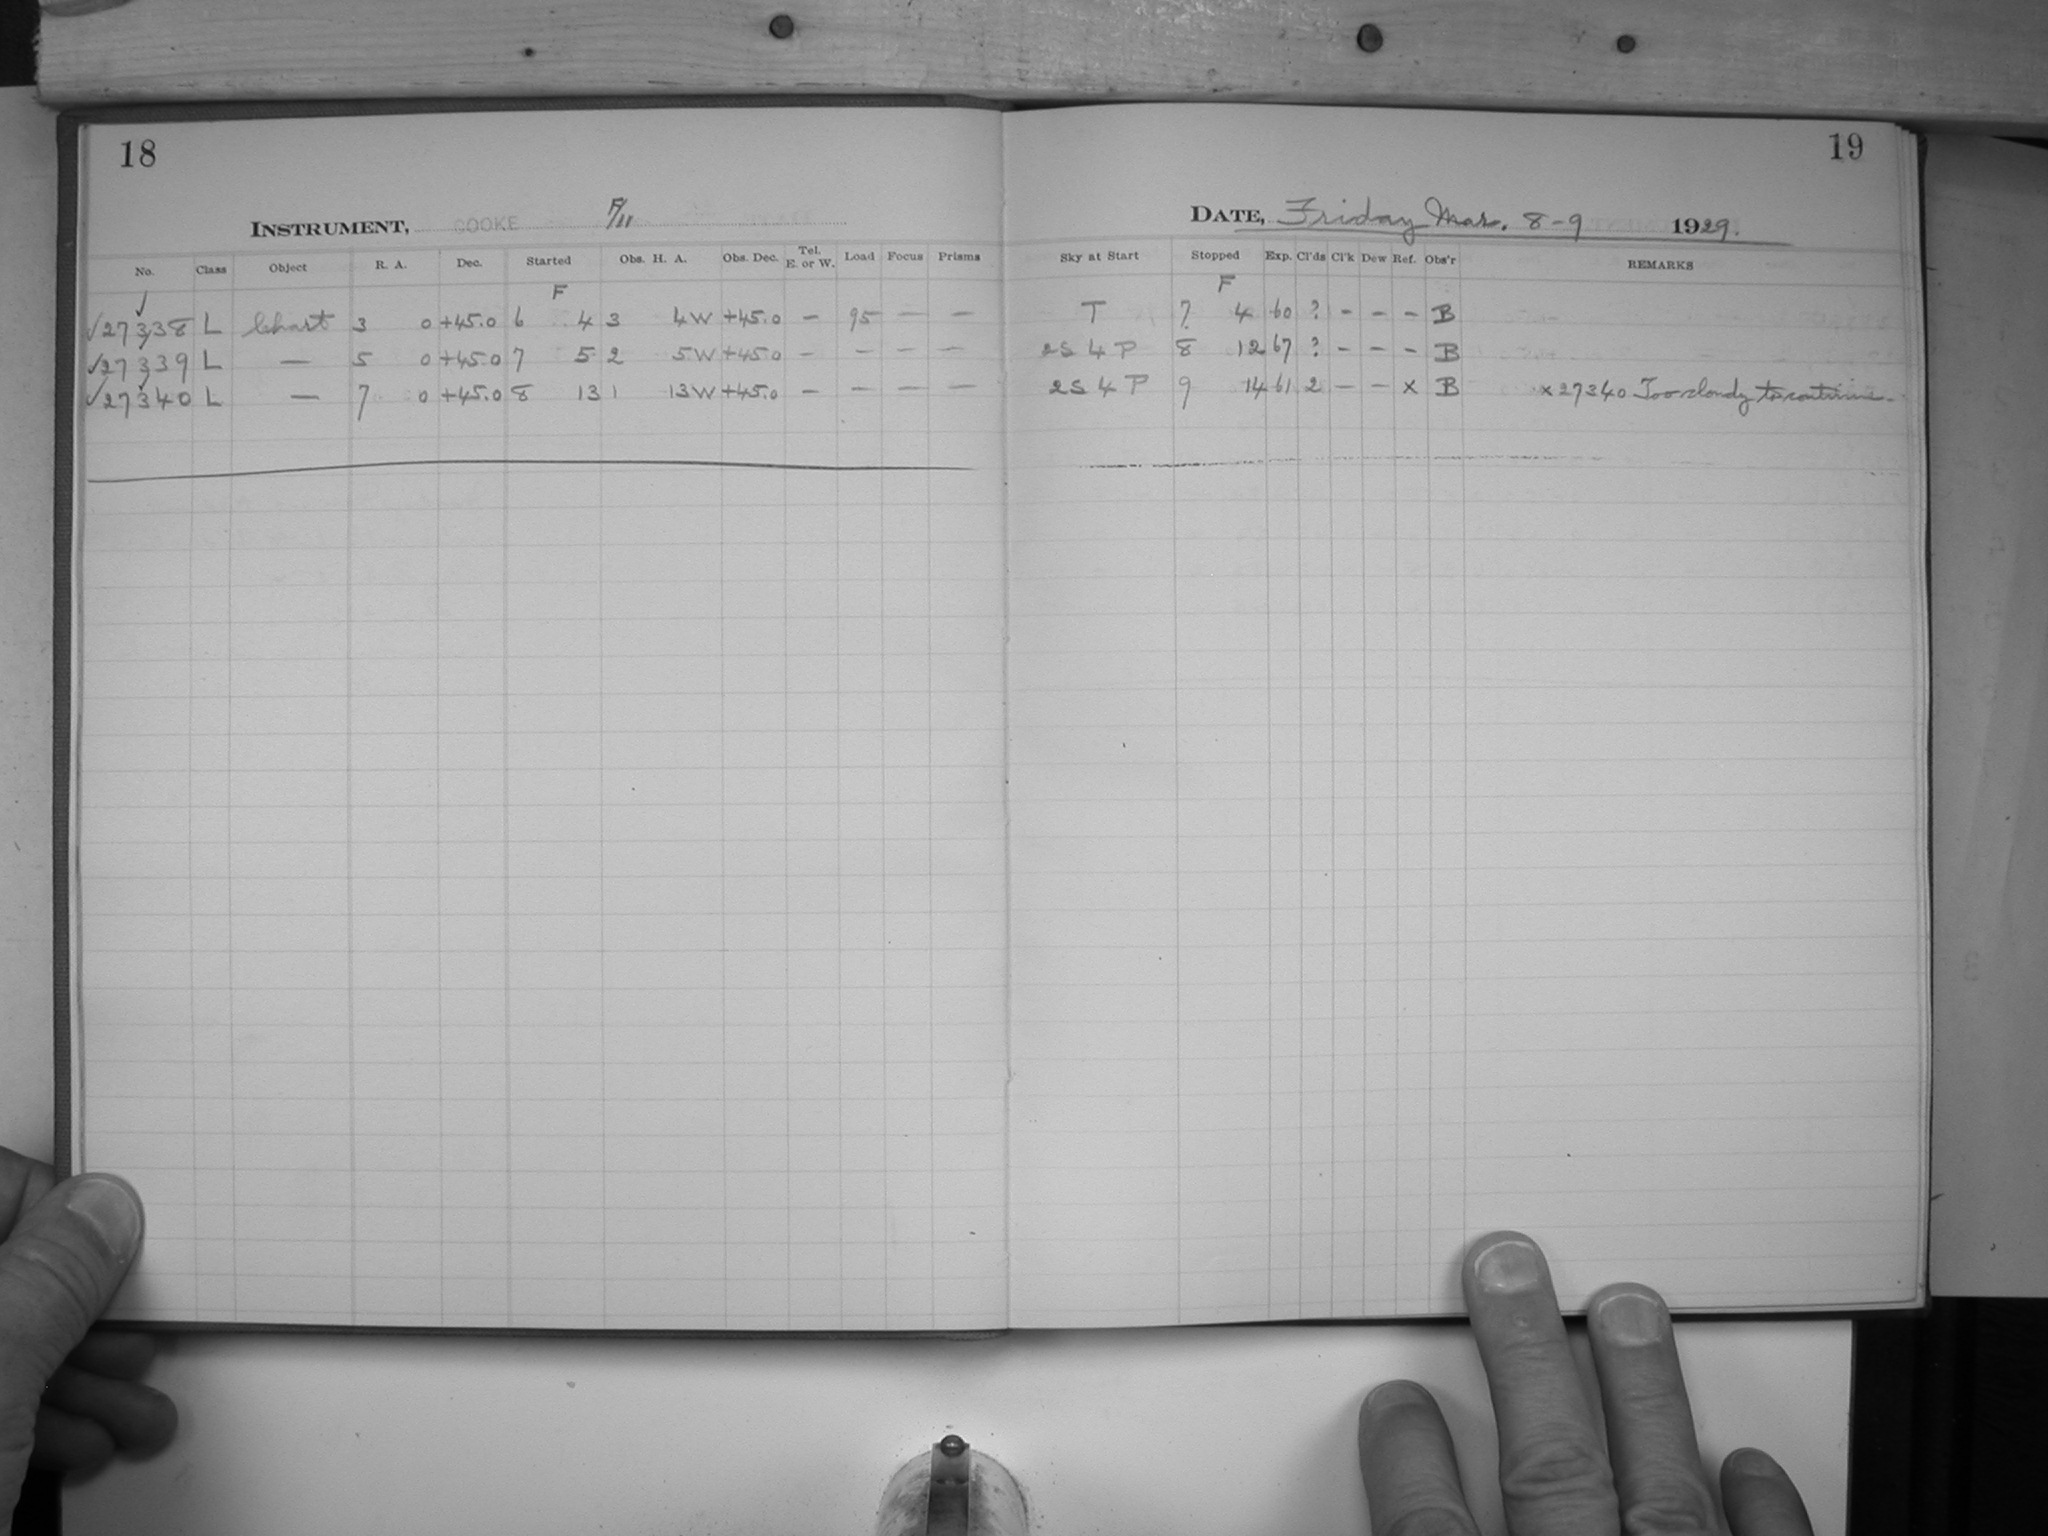 18
INSTRUMENT, COOKE F/11
No. Class Object R. A. Dec. Started Obs. H. A. Obs. Dec. Tel. E. or W. Load Focus Prisms
F
✓27338 L Chart 3 0 +45.0 6 4 3 4W +45.0 – 95 — —
✓27339 L — 5 0 +45.0 7 5 2 5W +45.0 – – — —
✓27340 L — 7 0 +45.0 8 13 1 13W +45.0 – — — —
19
DATE, Friday Mar. 8-9 1929.
Sky at Start Stopped Exp. Cl'ds Cl'k Dew Ref. Obs'r REMARKS
F
T 7 4 60 ? – – – B
2S 4 P 8 12 67 ? – – – B
2S 4 P 9 14 61 2 – – x B x27340 Too cloudy to continue.